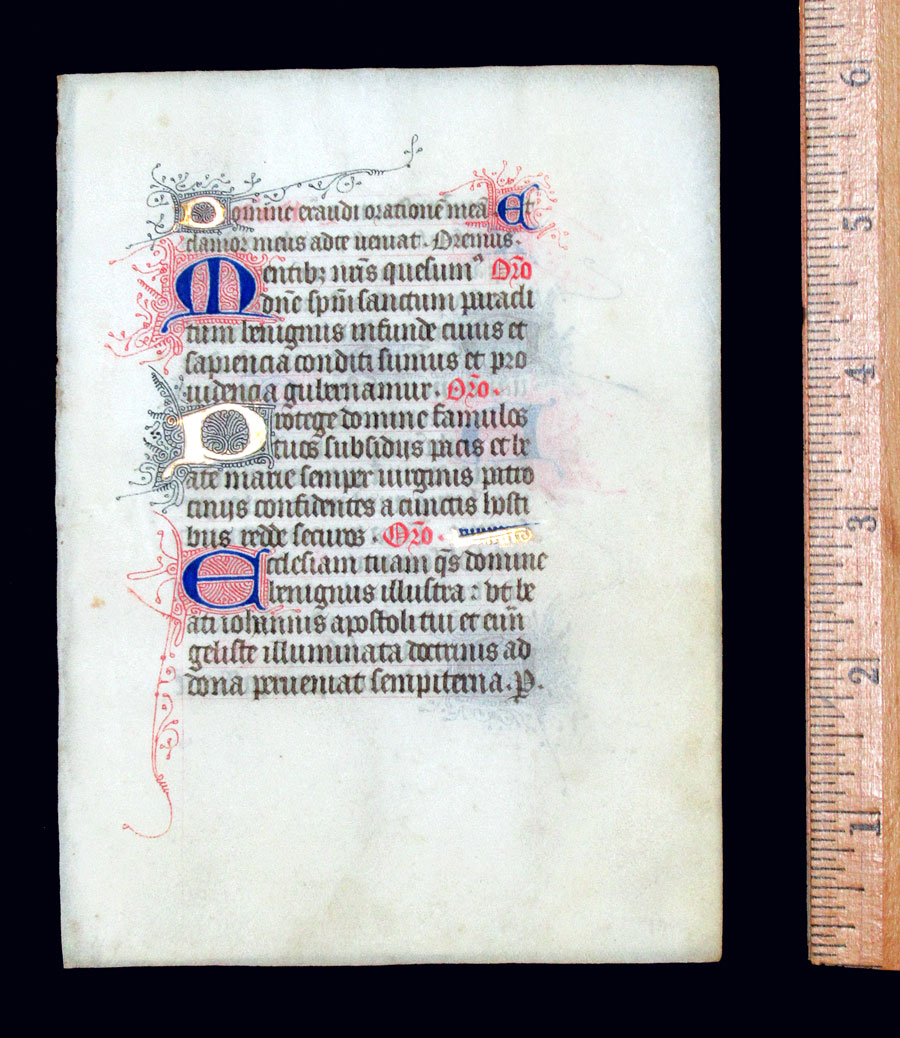 Domine exaudi orationē meā Et
clamor meus adte ueniat. Oremus.
Mentibꝫ nr̄is quesumꝰ Or̄o
dn̄e spm̄ sanctum paracli
tum benignus infunde cuius et
sapiencia conditi sumus et pro
uidencia gubernamur. Or̄o.
Protege domine famulos
tuos subsidijs pacis et be
ate marie semper uirginis patro
cinijs confidentes a cunctis hosti
bus redde securos. Or̄o.
Ecclesiam tuam qs̄ domine
benignus illustra : vt be
ati iohannis apostoli tui et euūn
geliste illuminata doctrinis ad
dona perueniat sempiterna. ꝑ.
6
5
4
3
2
1